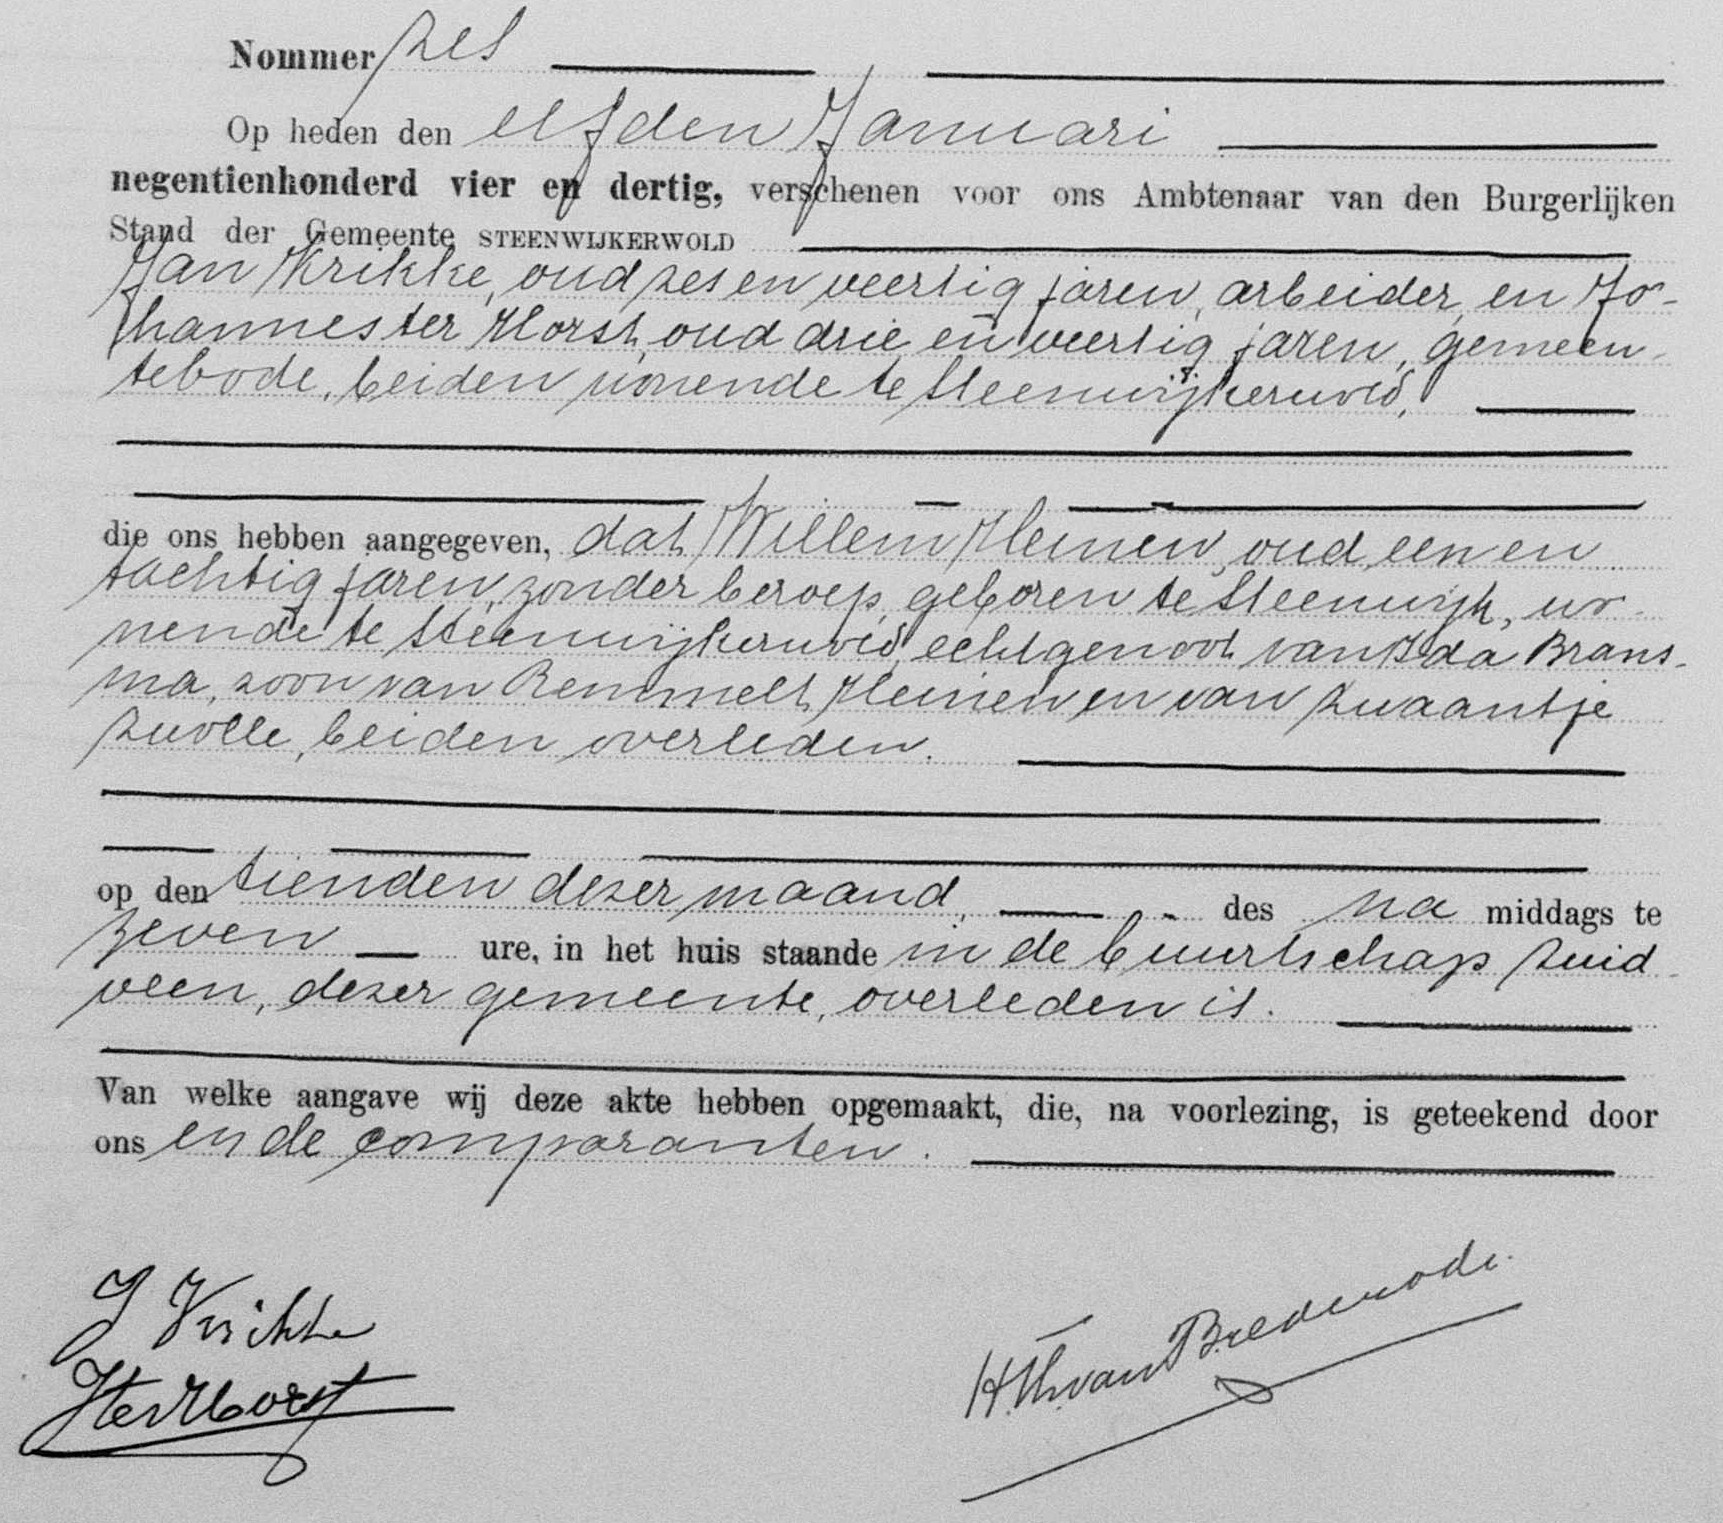 Nommer zes
Op heden den elfden Januari
negentienhonderd vier en dertig, verschenen voor ons Ambtenaar van den Burgerlijken
Stand der Gemeente STEENWIJKERWOLD
Jan Krikke, oud zes en veertig jaren, arbeider, en Jo-
hannes ter Horst, oud drie en veertig jaren, gemeen-
tebode, beiden wonende te Steenwijkerwold,
die ons hebben aangegeven, dat Willem Heinen, oud een en
tachtig jaren, zonder beroep, geboren te Steenwijk, wo-
nende te Steenwijkerwold, echtgenoot van Ida Brans-
ma, zoon van Remmelt Heinen en van Zwaantje
Zwolle, beiden overleden.
op den tienden dezer maand, des na middags te
zeven ure, in het huis staande in de buurtschap Zuid-
veen, dezer gemeente, overleden is.
Van welke aangave wij deze akte hebben opgemaakt, die, na voorlezing, is geteekend door
ons en de comparanten.
J Krikke
J ter Horst
H. Th. van Brederode.